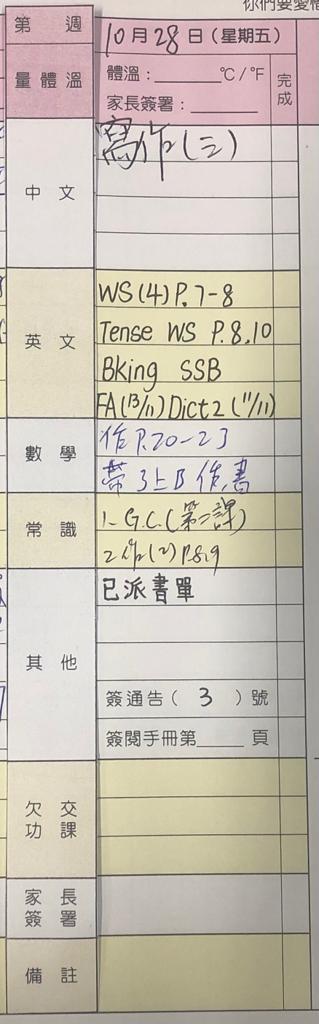 你們要愛惜
第 週
10月28日(星期五)
量體溫
體溫:______°C/°F
家長簽署:______
完成
中文
寫作(三)
英文
WS(4) P.7-8
Tense WS P.8,10
Bking SSB
FA(13/11) Dict2(11/11)
數學
作P.20-23
帶3上B作書
常識
1. G.C.(第二課)
2. 作(2) P.8,9
其他
已派書單
簽通告( 3 )號
簽閱手冊第____頁
欠交功課
家長簽署
備註